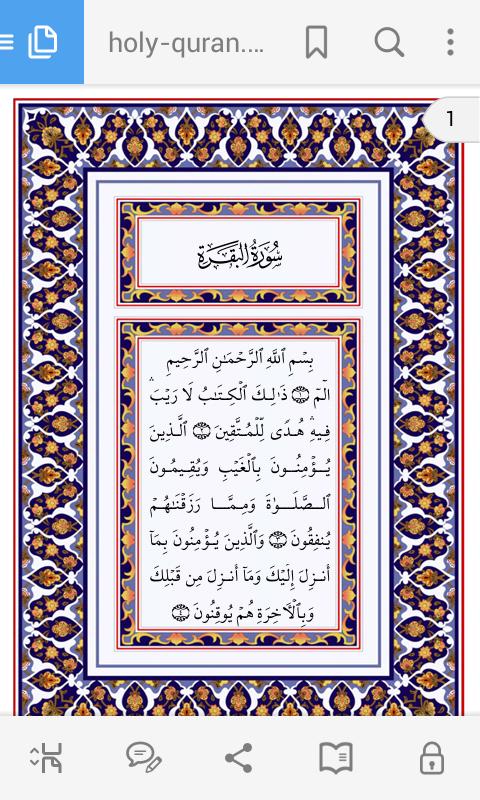 holy-quran....
1
سُورَةُ البَقَرَةِ
بِسْمِ ٱللَّهِ ٱلرَّحْمَٰنِ ٱلرَّحِيمِ
الٓمٓ ١ ذَٰلِكَ ٱلْكِتَٰبُ لَا رَيْبَ ۛ
فِيهِ ۛ هُدًى لِّلْمُتَّقِينَ ٢ ٱلَّذِينَ
يُؤْمِنُونَ بِٱلْغَيْبِ وَيُقِيمُونَ
ٱلصَّلَوٰةَ وَمِمَّا رَزَقْنَٰهُمْ
يُنفِقُونَ ٣ وَٱلَّذِينَ يُؤْمِنُونَ بِمَآ
أُنزِلَ إِلَيْكَ وَمَآ أُنزِلَ مِن قَبْلِكَ
وَبِٱلْءَاخِرَةِ هُمْ يُوقِنُونَ ٤